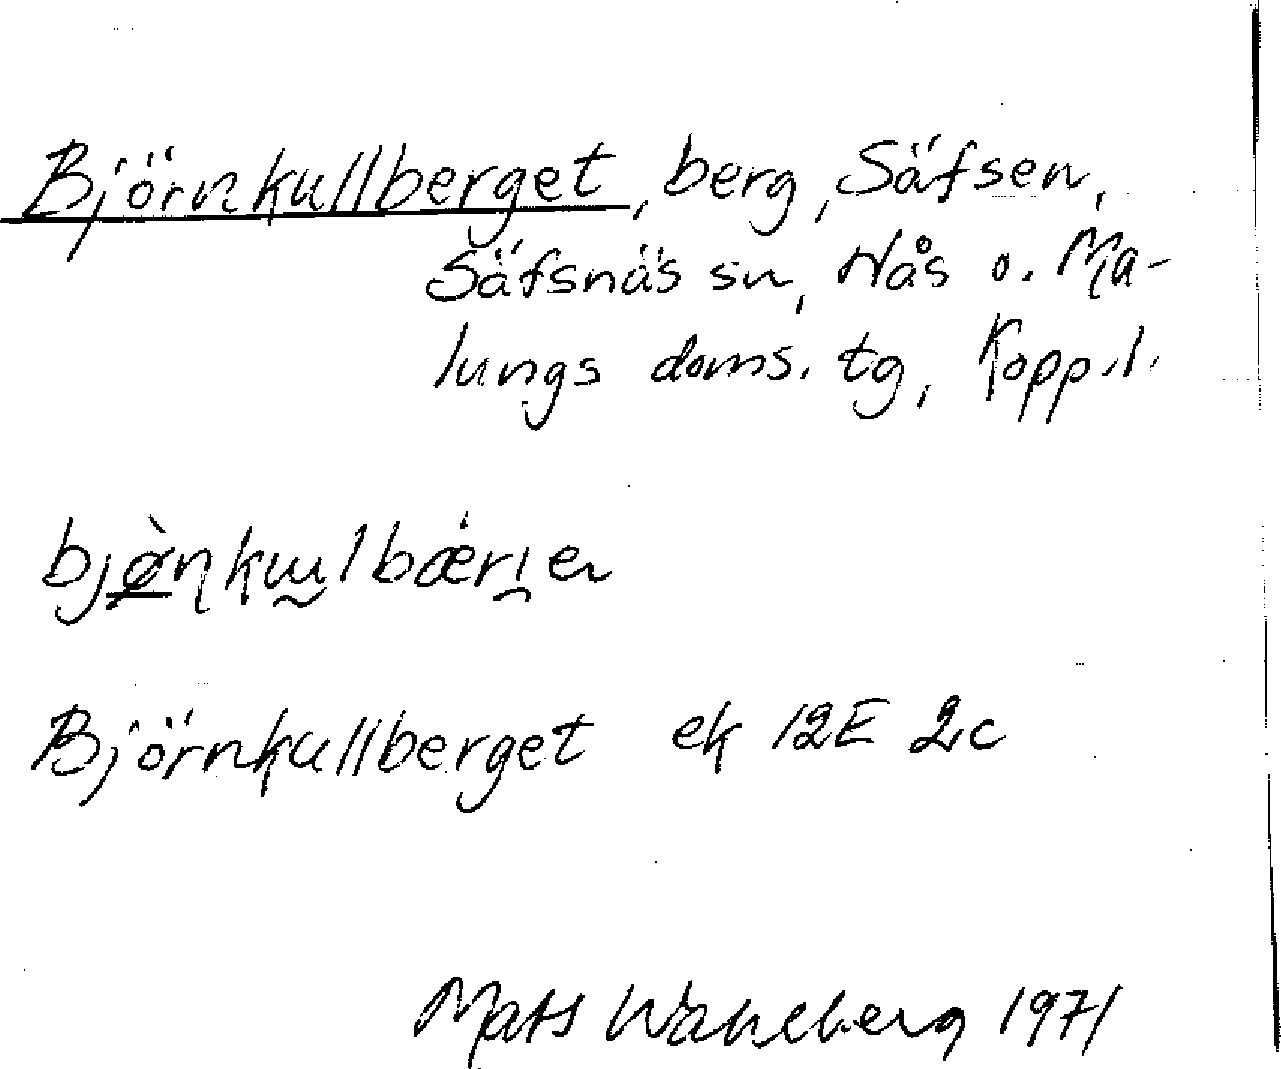 Björnkullberget, berg, Säfsen,
Säfsnäs sn, Nås o. Ma-
lungs doms. tg, Kopp.l.
bjø̀ṇkɯlbǽri̯en
Björnkullberget ek 12E 2c
Mats Wahlberg 1971